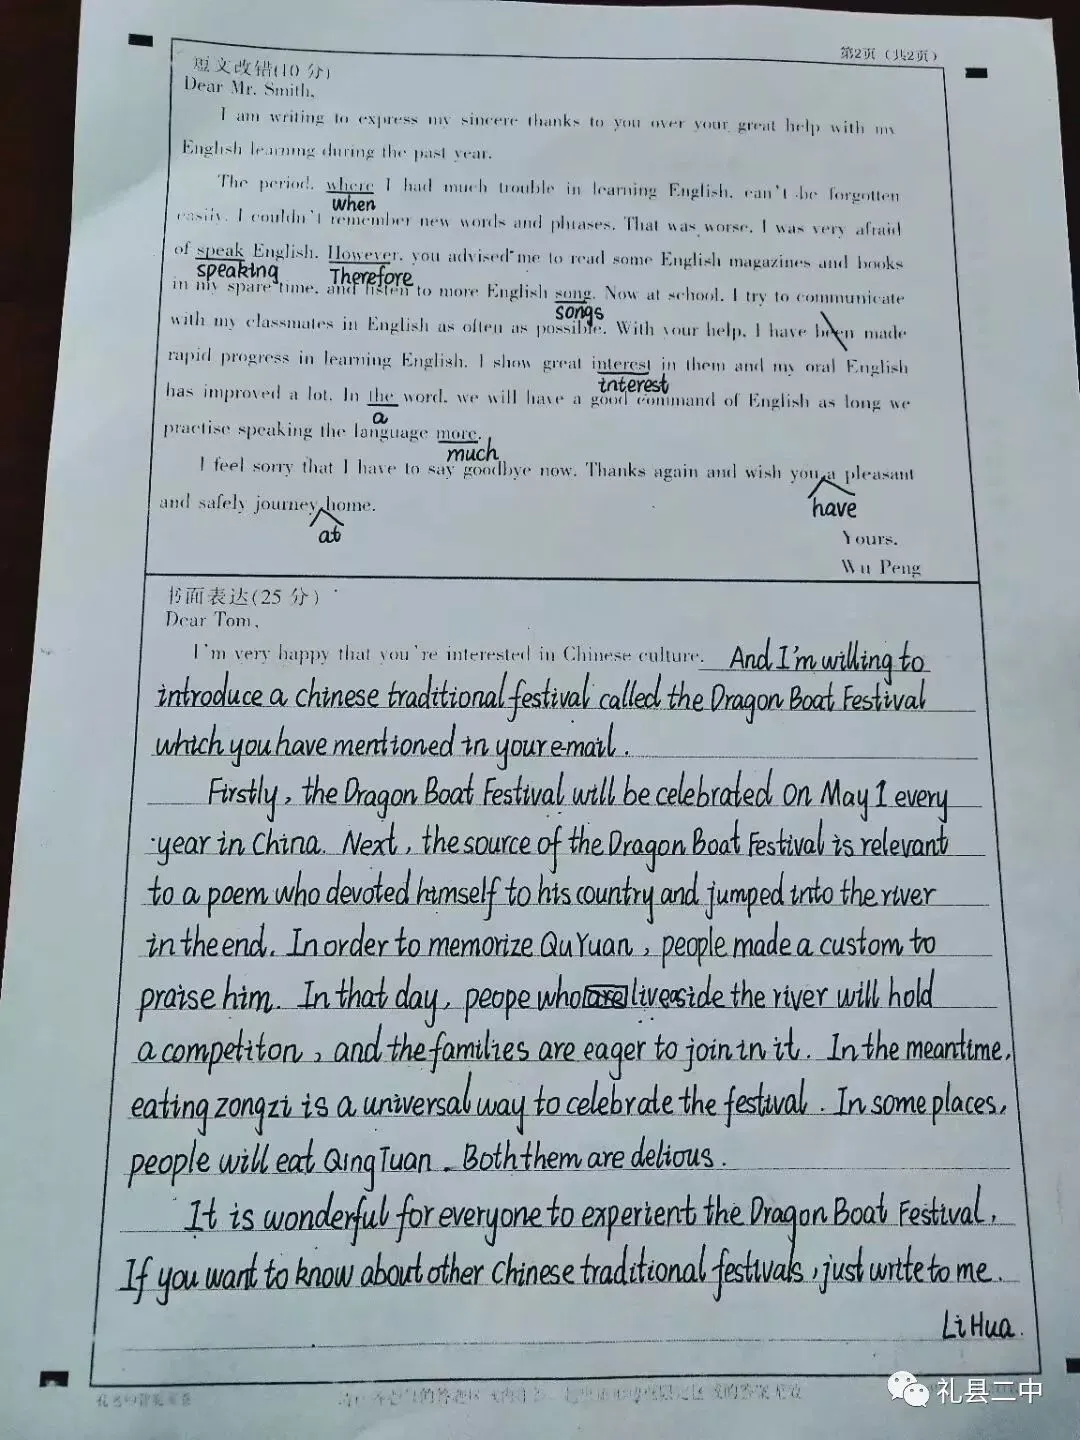 第2页（共2页）
短文改错(10 分)
Dear Mr. Smith,
I am writing to express my sincere thanks to you over your great help with my
English learning during the past year.
The period, where I had much trouble in learning English, can't be forgotten
when
easily. I couldn't remember new words and phrases. That was worse, I was very afraid
of speak English. However, you advised me to read some English magazines and books
speaking Therefore
in my spare time, and listen to more English song. Now at school, I try to communicate
songs
with my classmates in English as often as possible. With your help, I have been made
rapid progress in learning English. I show great interest in them and my oral English
interest
has improved a lot. In the word, we will have a good command of English as long we
a
practise speaking the language more.
much
I feel sorry that I have to say goodbye now. Thanks again and wish you a pleasant
have
and safely journey home.
at
Yours,
Wu Peng
书面表达(25 分)
Dear Tom,
I'm very happy that you're interested in Chinese culture. And I'm willing to
introduce a chinese traditional festival called the Dragon Boat Festival
which you have mentioned in your e-mail.
Firstly, the Dragon Boat Festival will be celebrated on May 1 every
year in China. Next, the source of the Dragon Boat Festival is relevant
to a poem who devoted himself to his country and jumped into the river
in the end. In order to memorize Qu Yuan, people made a custom to
praise him. In that day, peope who live aside the river will hold
a competiton, and the families are eager to join in it. In the meantime,
eating zongzi is a universal way to celebrate the festival. In some places,
people will eat Qing Tuan. Both them are delious.
It is wonderful for everyone to experient the Dragon Boat Festival,
If you want to know about other Chinese traditional festivals, just write to me.
Li Hua.
礼县二中